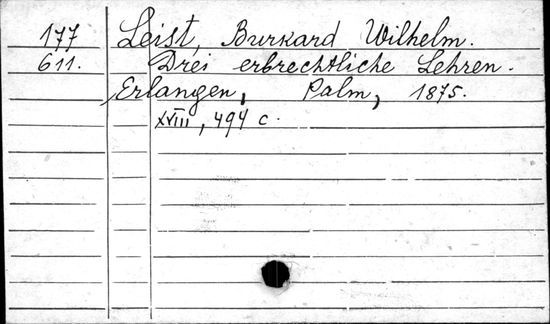 177 Leist, Burkard Wilhelm.
611. Drei erbrechtliche Lehren.
Erlangen, Palm, 1875.
XVIII, 494 c.